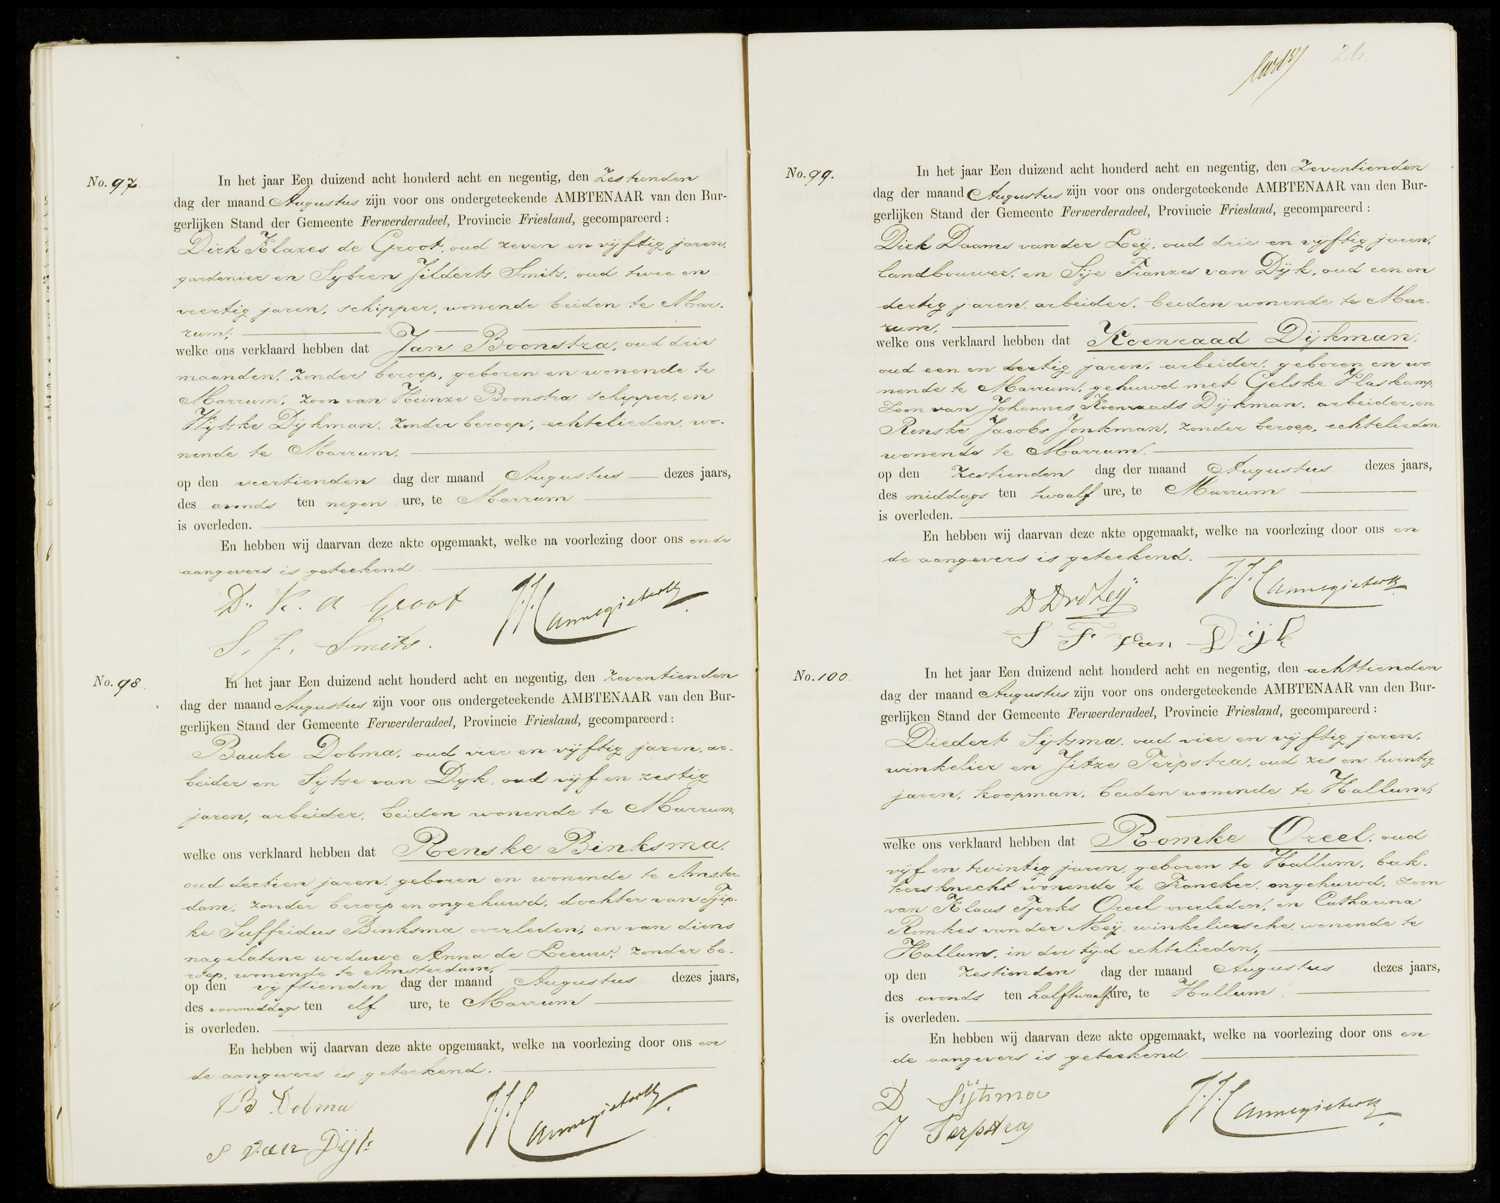 No. 97.
In het jaar Een duizend acht honderd acht en negentig, den zestienden
dag der maand Augustus zijn voor ons ondergeteekende AMBTENAAR van den Bur-
gerlijken Stand der Gemeente Ferwerderadeel, Provincie Friesland, gecompareerd :
Dirk Klazes de Groot, oud zeven en vijftig jaren,
gardenier en Sybren Jilderts Smits, oud twee en
veertig jaren, schipper, wonende beiden te Mar-
rum,
welke ons verklaard hebben dat Jan Boonstra, oud drie
maanden, zonder beroep, geboren en wonende te
Marrum, zoon van Heinze Boonstra schipper, en
Wytske Dijkman, zonder beroep, echtelieden, wo-
nende te Marrum,
op den veertienden dag der maand Augustus dezes jaars,
des avonds ten negen ure, te Marrum
is overleden.
En hebben wij daarvan deze akte opgemaakt, welke na voorlezing door ons en de
aangevers is geteekend.
D. K. d Groot
J. J. Cannegieter
S. J. Smits.
No. 98.
In het jaar Een duizend acht honderd acht en negentig, den zeventienden
dag der maand Augustus zijn voor ons ondergeteekende AMBTENAAR van den Bur-
gerlijken Stand der Gemeente Ferwerderadeel, Provincie Friesland, gecompareerd :
Bauke Dobma, oud vier en vijftig jaren, ar-
beider en Sytse van Dijk, oud vijf en zestig
jaren, arbeider, beiden wonende te Marrum,
welke ons verklaard hebben dat Renske Binksma,
oud dertien jaren, geboren en wonende te Amster
dam, zonder beroep en ongehuwd, dochter van Tjip-
ke Suffridus Binksma overleden, en van diens
nagelatene weduwe Anna de Leeuw, zonder be-
roep, wonende te Amsterdam,
op den vijftienden dag der maand Augustus dezes jaars,
des voormiddags ten elf ure, te Marrum
is overleden.
En hebben wij daarvan deze akte opgemaakt, welke na voorlezing door ons en
de aangevers is geteekend.
B. Dobma
J. J. Cannegieter
S van Dijk
No. 99.
In het jaar Een duizend acht honderd acht en negentig, den zeventienden
dag der maand Augustus zijn voor ons ondergeteekende AMBTENAAR van den Bur-
gerlijken Stand der Gemeente Ferwerderadeel, Provincie Friesland, gecompareerd :
Dirk Daams van der Leij, oud drie en vijftig jaren,
landbouwer, en Sije Franzes van Dijk, oud een en
dertig jaren, arbeider, beiden wonende te Mar-
rum,
welke ons verklaard hebben dat Koenraad Dijkman,
oud een en dertig jaren, arbeider, geboren en wo
nende te Marrum, gehuwd met Gelske Plaskamp,
zoon van Johannes Koenraads Dijkman, arbeider, en
Renske Jacobs Jonkman, zonder beroep, echtelieden
wonende te Marrum,
op den zestienden dag der maand Augustus dezes jaars,
des middags ten twaalf ure, te Marrum
is overleden.
En hebben wij daarvan deze akte opgemaakt, welke na voorlezing door ons en
de aangevers is geteekend.
D D vd Leij
J. J. Cannegieter
S F van Dijk
No. 100
In het jaar Een duizend acht honderd acht en negentig, den achttienden
dag der maand Augustus zijn voor ons ondergeteekende AMBTENAAR van den Bur-
gerlijken Stand der Gemeente Ferwerderadeel, Provincie Friesland, gecompareerd :
Diedert Sijtsma, oud vier en vijftig jaren,
winkelier en Jitze Terpstra, oud zes en twintig
jaren, koopman, beiden wonende te Hallum,
welke ons verklaard hebben dat Romke Oreel, oud
vijf en twintig jaren, geboren te Hallum, bak-
kersknecht wonende te Franeker, ongehuwd, zoon
van Klaas Tjerks Oreel overleden, en Catharina
Romkes van der Meij, winkeliersche, wonende te
Hallum, in der tijd echtelieden,
op den zestienden dag der maand Augustus dezes jaars,
des avonds ten half twaalf ure, te Hallum
is overleden.
En hebben wij daarvan deze akte opgemaakt, welke na voorlezing door ons en
de aangevers is geteekend
D Sijtsma
J. J. Cannegieter
J Terpstra